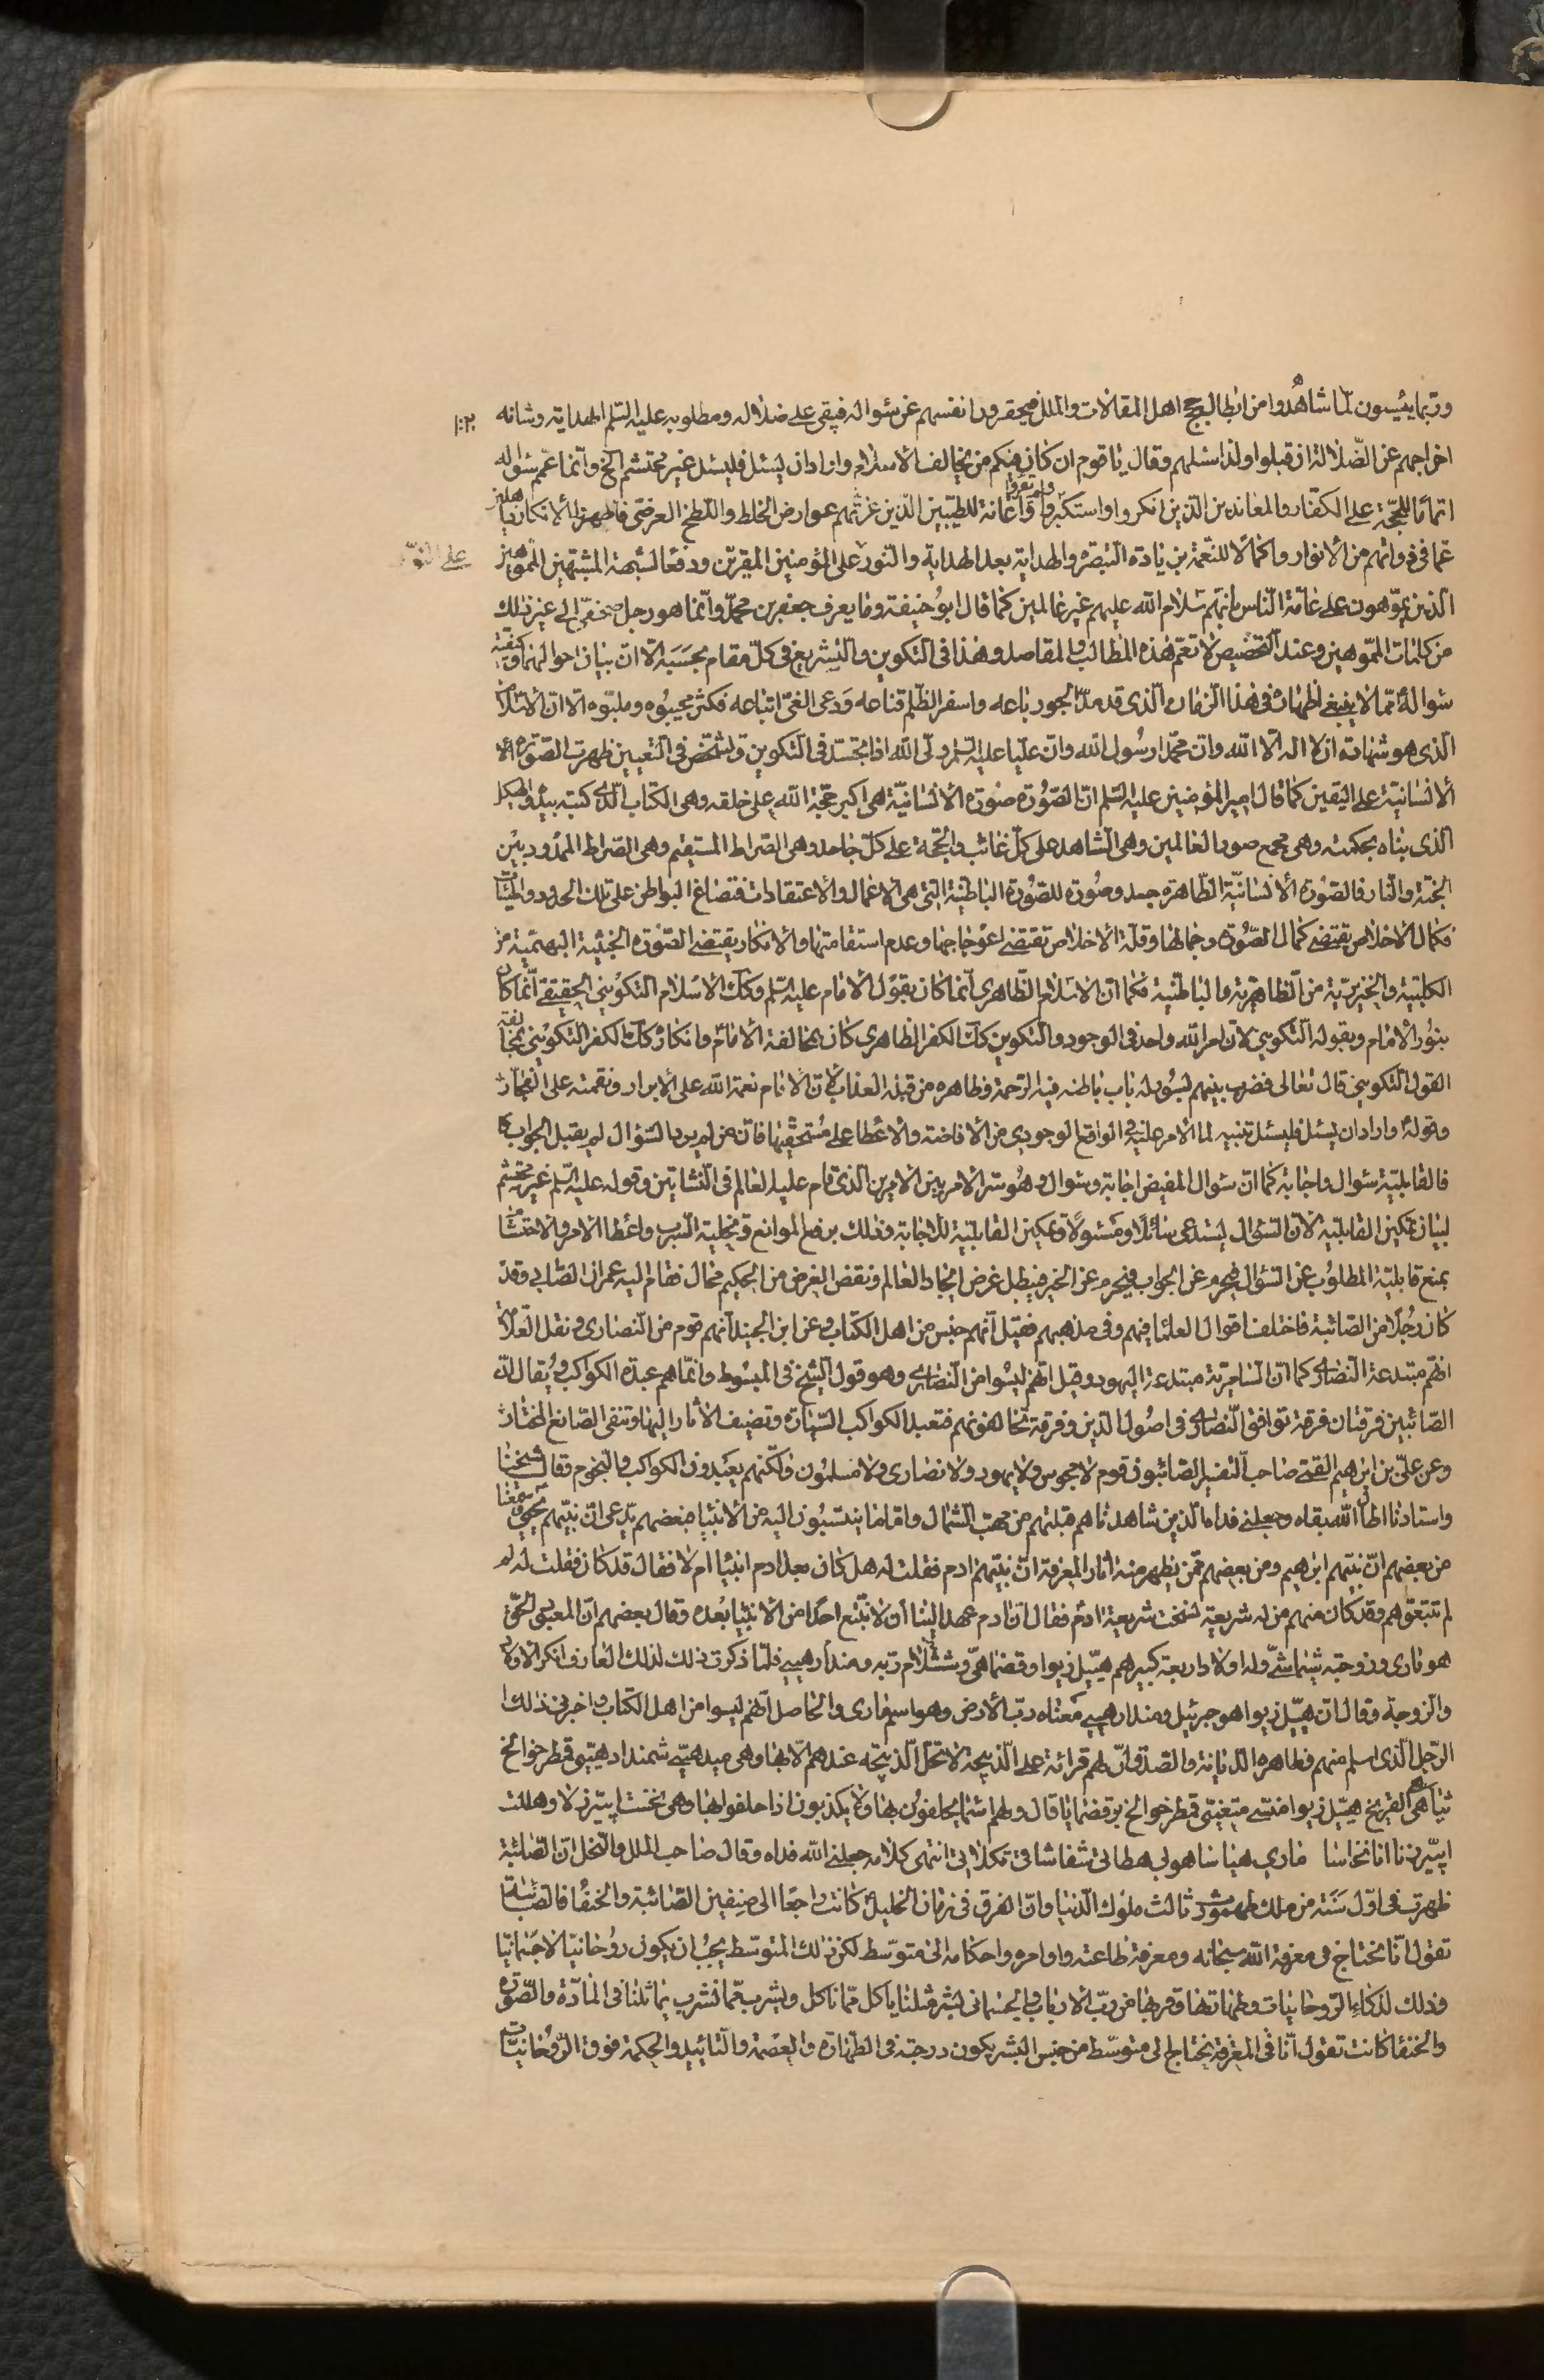 وربما ييئسون لما شاهدوا من ابطال حجج اهل المقالات والملل فيحقرون انفسهم عن سواله فيبقى على ضلاله ومطلوبه عليه السلم الهداية وشانه
اخراجهم عن الضلالة ان قبلوا ولذا سئلهم وقال يا قوم ان كان فيكم من يخالف الاسلام واراد ان يسئل فليسئل غير محتشم الخ وانما عمم سواله
اتماما للحجة على الكفار والمعاندين الذين انكروا واستكبروا واعانة للطيبين الذين غرتهم عوارض الخلط واللطخ العرضي فاظهروا الانكار
عما في ذواتهم من الانوار واكمالا للنعمة بزيادة التبصرة والهداية بعد الهداية والنور على المؤمنين المقرين ودفعا لشبهة المشبهين المموهين
الذين يموهون على عامة الناس بانهم سلام الله عليهم غير عالمين كما قال ابو حنيفة وما يعرف جعفر بن محمد وانما هو رجل صحفي الى غير ذلك
من كلمات المموهين وعند التخصيص لا تعم هذه المطالب والمقاصد وهذا في التكوين والتشريع في كل مقام بحسبه الا ان بيان احوالهما وكيفية
سواله مما لا ينبغي اظهاره في هذا الزمان الذي قد مد الجور باعه واسفر الظلم قناعه ودعى الغي اتباعه فكثر مجيبوه وملبوه الا ان الاسلام
الذي هو شهادة ان لا اله الا الله وان محمدا رسول الله وان عليا عليه السلم ولي الله اذا تجسد في التكوين وتشخص في التعيين ظهرت الصورة
الانسانية على اليقين كما قال امير المؤمنين عليه السلم ان الصورة صورة الانسانية هي اكبر حجة الله على خلقه وهي الكتاب الذي كتبه بيده والهيكل
الذي بناه بحكمته وهي مجمع صور العالمين وهي الشاهد على كل غائب والحجة على كل جاحد وهي الصراط المستقيم وهي الصراط الممدود بين
الجنة والنار فالصورة الانسانية الظاهرة جسد وصورة للصورة الباطنية التي هي الاعمال والاعتقادات فتصاغ البواطن على تلك الحدود والهيئات
فكمال الاخلاص تقتضي كمال الصورة وجمالها وقلة الاخلاص تقتضي اعوجاجها وعدم استقامتها والانكار يقتضي الصورة الخبيثة البهيمية من
الكلبية والخنزيرية من الظاهرية والباطنية فكما ان الاسلام الظاهري انما كان بقول الامام عليه السلم وكك الاسلام التكويني الحقيقي انما كان
بنور الامام وبقوله التكويني لان امر الله واحد في الوجود والتكوين كك الكفر الظاهري كان بمخالفة الامام وانكاره كك الكفر التكويني بمخالفة
القول التكويني قال تعالى فضرب بينهم بسور له باب باطنه فيه الرحمة وظاهره من قبله العذاب لان الامام نعمة الله على الابرار ونقمته على الفجار
وقوله واراد ان يسئل فليسئل تنبيه لما الامر عليه في الواقع الوجودي من الافاضة والاعطاء على مستحقيها فان من لم يرد السؤال لم يقبل الجواب
فالقابلية سوال واجابة كما ان سوال المفيض اجابة وسوال وهو سر الامر بين الامرين الذي قام عليه العالم في النشاتين وقوله عليه السلم غير محتشم
لبيان تمكين القابلية لان السؤال يستدعي سائلا ومسئولا وتمكين القابلية للاجابة وذلك برفع الموانع وتخلية السرب واعطاء الامر والاحتشام
يمنع قابلية المطلوب عن السؤال فيحرم عن الجواب فيحرم عن الخير فيبطل غرض ايجاد العالم ونقض الغرض من الحكيم محال فقام اليه عمران الصابي وقد
كان رجلا من الصائبة فاختلفت اقوال العلماء فيهم وفي مذهبهم فقيل انهم جنس من اهل الكتاب وعن ابن الجنيد انهم قوم من النصارى ونقل العلامة
انهم مبتدعة النصارى كما ان السامرية مبتدعة اليهود وقيل انهم ليسوا من النصارى وهو قول الشيخ في المبسوط وانما هم عبدة الكواكب ويقال ان
الصائبين فرقتان فرقة توافق النصارى في اصول الدين وفرقة تخالفونهم فتعبد الكواكب السيارة وتضيف الاثار اليها وتنفى الصانع المختار
وعن علي بن ابرهيم القمي صاحب التفسير الصائبون قوم لا مجوس ولا يهود ولا نصارى ولا مسلمون ولكنهم يعبدون الكواكب والنجوم وقال شيخنا
واستادنا اطال الله بقاه وجعلني فداه الذين شاهدناهم قبلتهم من مهب الشمال واما ما ينتسبون اليه من الانبيا فبعضهم يدعى ان نبيهم يحيى وسمعنا
من بعضهم ان نبيهم ابرهيم ومن بعضهم ممن يظهر منه اثار المعرفة ان نبيهم ادم فقلت له هل كان بعد ادم انبيا ام لا فقال قد كان فقلت له لم
لم تتبعوهم وقد كان منهم من له شريعة نسخت شريعة ادم فقال ان ادم عهد الينا ان لا نتبع احدا من الانبيا بعده وقال بعضهم ان المعنى الحي
والزوجة وقال ان هيبل زيوا هو جبرئيل ومندا رهيي معناه رب الارض وهو اسم فارى والحاصل انهم ليسوا من اهل الكتاب واخبرنى ذلك
الرجل الذي اسلم منهم فظاهره الديانة والصدق ان لهم قرائة على الذبيحة لا تحل الذبيحة عندهم الا بها
انتهى كلامه جعلني الله فداه وقال صاحب الملل والنحل ان الصائبة
ظهرت في اول سنة من ملك طهمورث ثالث ملوك الدنيا وان الفرق في زمان الخليل كانت راجعا الى صنفين الصائبة والحنفا فالصائبة
تقول انا نحتاج في معرفة الله سبحانه ومعرفة طاعته واوامره واحكامه الى متوسط لكن ذلك المتوسط يجب ان يكون روحانيا لا جسمانيا
وذلك لذكاء الروحانيات وطهارتها وقربها من رب الارباب والجسماني بشر مثلنا ياكل مما ناكل ويشرب مما نشرب يماثلنا في المادة والصورة
والحنفا كانت تقول انا في المعرفة نحتاج الى متوسط من جنس البشر يكون درجته في الطهارة والعصمة والتائيد والحكمة فوق الروحانيات